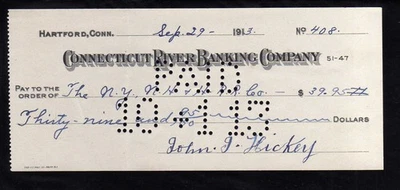 HARTFORD, CONN. Sep. 29 - 1913. No 408.
CONNECTICUT RIVER BANKING COMPANY 51-47
PAID
PAY TO THE
ORDER OF The N.Y. N.H. & H. R.R. Co. — $ 39.95
Thirty-nine and 95 DOLLARS
10 1 13
John J. Hickey